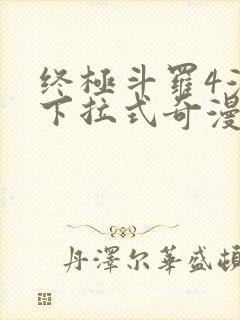 终極斗羅4
下拉式奇漫
丹澤尔華盛頓